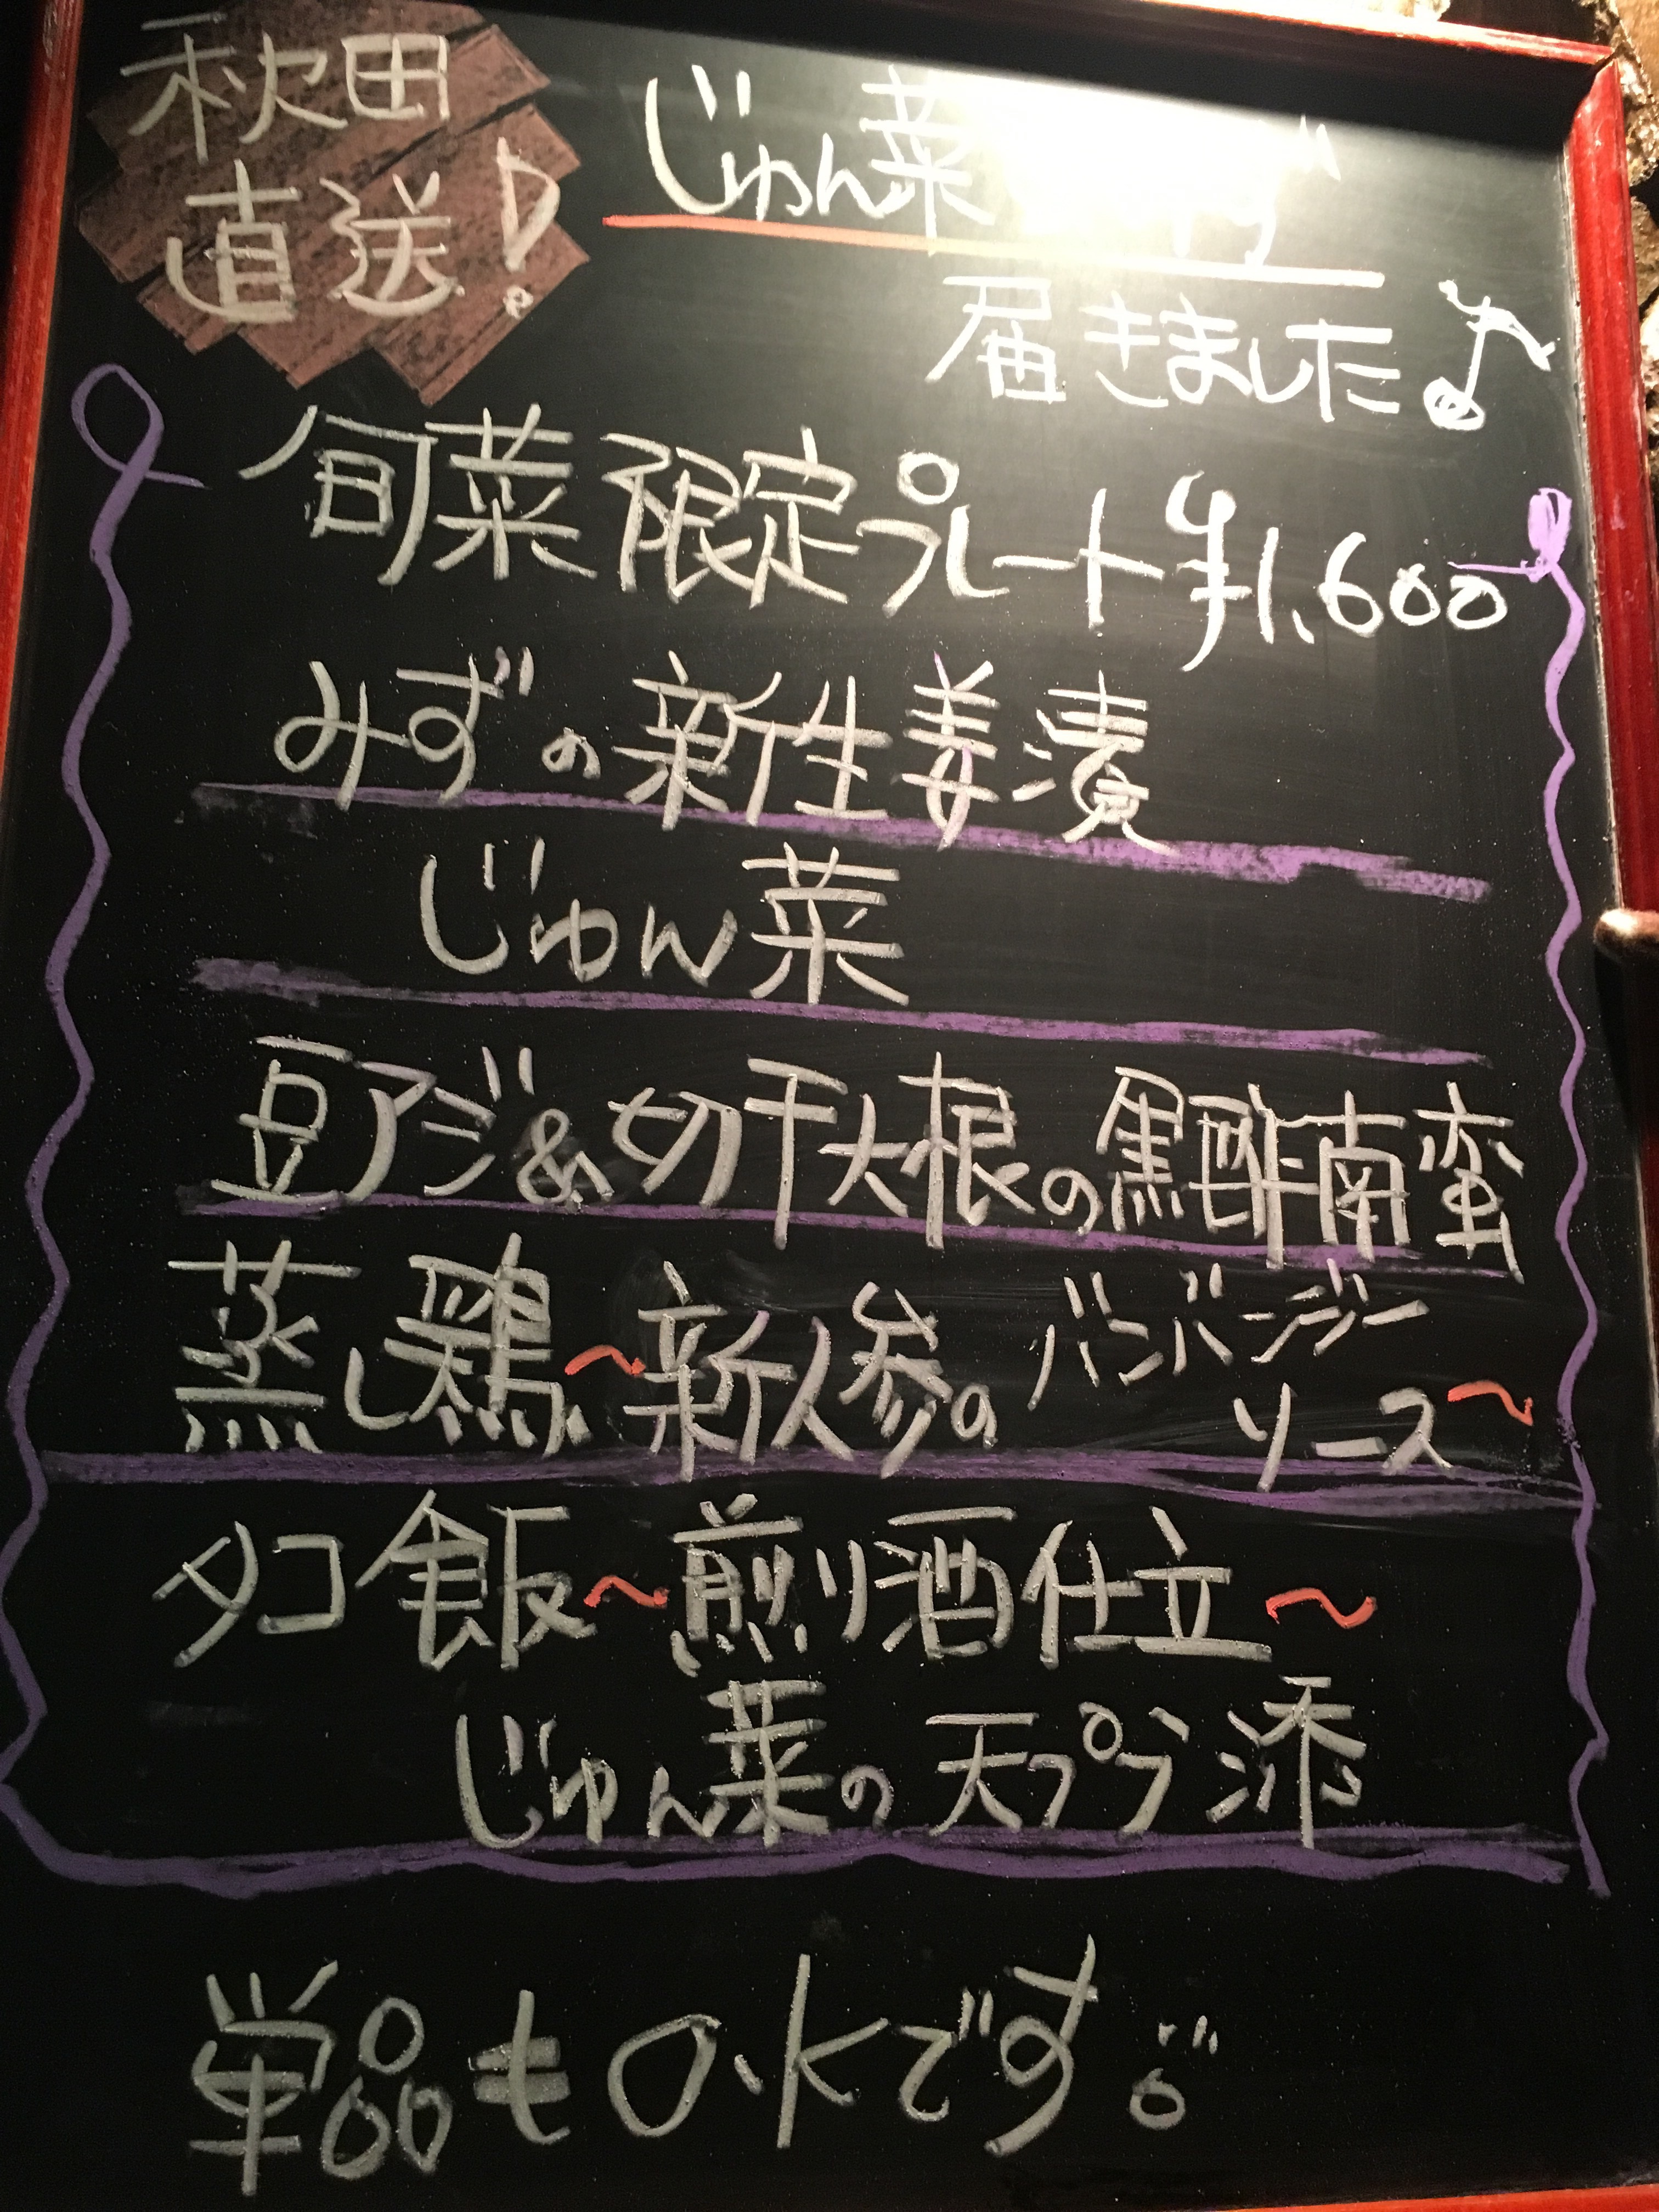 秋田
直送!
じゅん菜
届きました♪
旬菜限定プレート ¥1,600
みずの新生姜漬
じゅん菜
豆アジ&切干大根の黒酢南蛮
蒸し鶏〜新人参のバンバンジー
ソース〜
タコ飯〜煎り酒仕立〜
じゅん菜の天プラ添
単品もO.Kです。